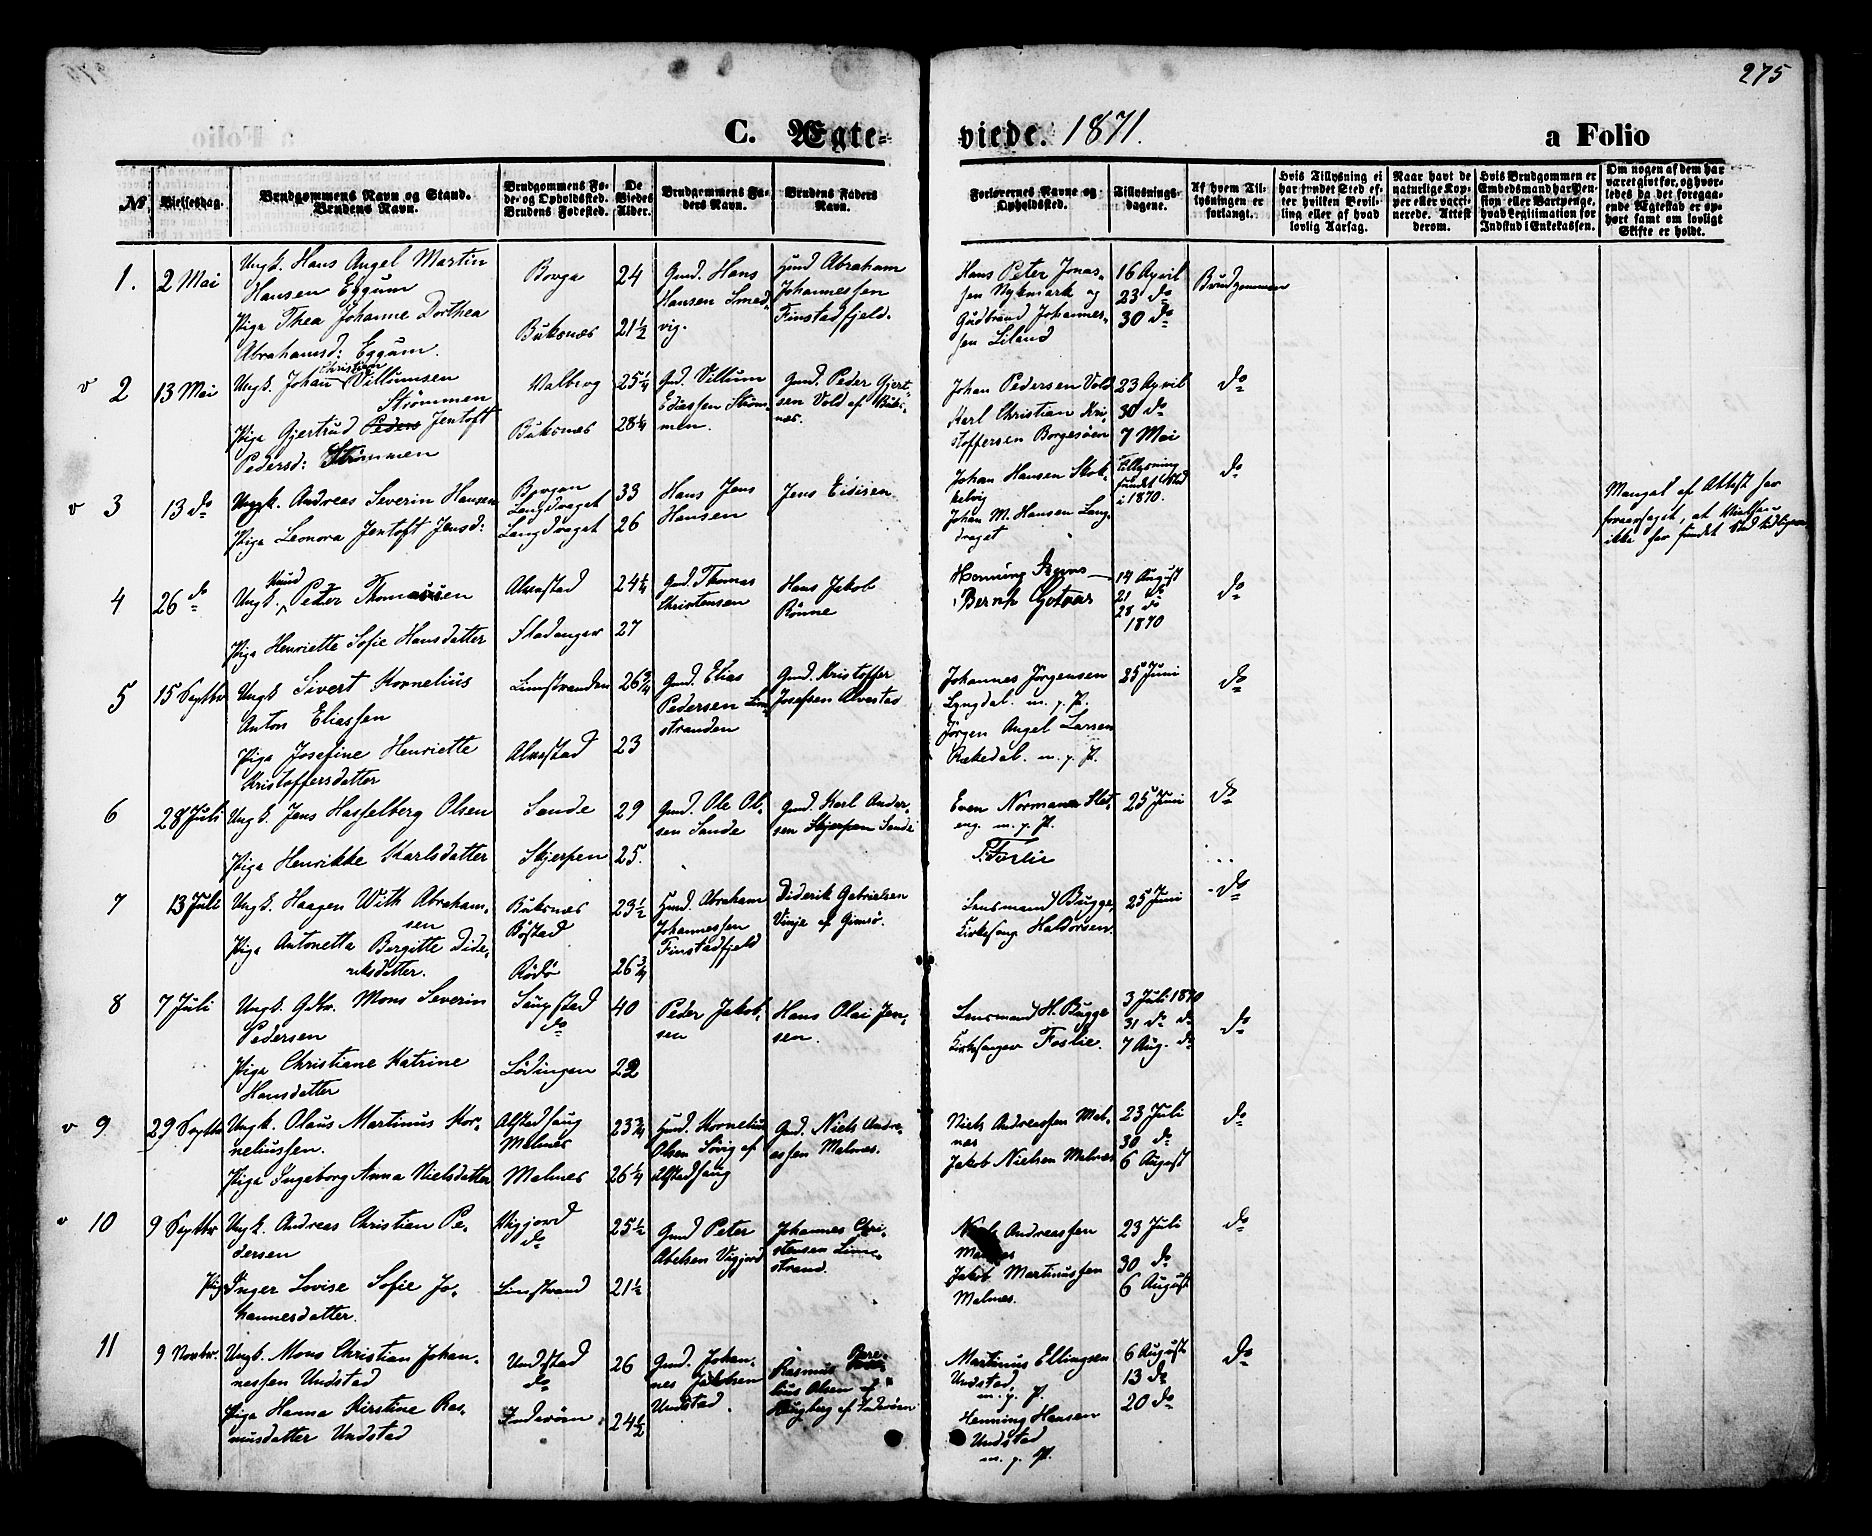 275
C. Ægte-
viede. 1871.
a Folio
No.
Vielsesdag.
Brudgommens Navn og Stand.
Brudens Navn.
Brudgommens Fø-
de- og Opholdssted.
Brudens Fødested.
De
Viedes
Alder.
Brudgommens Fa-
ders Navn.
Brudens Faders
Navn.
Forlovernes Navne og
Opholdssted.
Tillysnings-
dagene.
Af hvem Til-
lysningen er
forlangt.
Hvis Tillysning ei
har fundet Sted ef-
ter hvilken Bevil-
ling eller af hvad
lovlig Aarsag.
Naar havt de
naturlige Kop-
per eller vacci-
nerede. Attest
derom.
Hvis Brudgommen er
Embedsmand har Pen-
sion eller Vartpenge,
hvad Legitimation for
Indskud i Enkekassen.
Om nogen af dem har
været givt før, og hvor-
ledes da det foregaa-
ende Ægteskab er op-
hørt samt om lovligt
Skifte er holdt.
1.
2 Mai
Ungk. Hans Angel Martin
Hansen Eggum
Pige Thea Johanne Dorthea
Abrahamsd: Eggum.
Borga
Buksnæs
24
21½
Gmd. Hans
Hansen Smed-
vig.
Hmd Abraham
Johannessen
Finstadfjeld.
Hans Peter Jonas-
sen Nykmark og
Gudbrand Johannes-
sen Liland
16 April
23 do
30 do
Brudgommen
v 2
13 Mai
Ungk. Johan Christian Villumsen
Strømmen
Pige Gjertrud Peders Jentoft
Pedersd: Strømmen
Valberg
Buksnæs
25¼
28¼
Gmd. Villum
Ediassen Strøm-
men.
Gmd. Peder Gjert-
sen Vold af Buks-
næs.
Johan Pedersen Vold
Karl Christian Kri-
stoffersen Borgesøen
23 April
30 do
7 Mai
do
v 3
13 do
Ungk. Andreas Severin Hansen
Pige Leonora Jentoft Jensd:
Langdraget
Langdraget
33
26
Hans Jens
Hansen
Jens Eidisen
Johan Hansen Stok-
kelvig
Johan M. Hansen Lang-
draget
Tillysning
fundet Sted
i 1870.
do
Mangel af Attest har
foraarsaget, at Vielsen
ikke har fundet Sted tidligere
4
26 do
Ungk. Knud Peter Thomassen
Pige Henriette Sofie Hansdatter
Alvestad
Fladanger
24¼
27
Gmd Thomas
Christensen
Hans Jakob
Rønne
14 August
21 do
28 do
1870
do
5
15 Septbr
Ungk Sivert Kornelius
Anton Eliassen
Pige Josefine Henriette
Kristoffersdatter
Limstranden
Alvestad
26¾
23
Gmd. Elias
Pedersen Lim-
stranden
Gmd. Kristoffer
Josefsen Alvestad
Johannes Jørgensen
Lyngdal. m. p. P.
Jörgen Angel Larsen
Rekedal. m. p. P.
25 Juni
do
6
28 Juli
Ungk. Jens Hasselberg Olsen
Pige Henrikke Karlsdatter
Sande
Skjerpen
29
25.
Gmd. Ole Ol-
sen Sande
Gmd. Karl Ander-
sen Skjerpen Sande
Even Normann Slet-
eng. m. p. P.
Foslie
25 Juni
do
7
13 Juli
Ungk. Haagen With Abraham-
sen
Pige Antonetta Bergitte Dide-
riksdatter.
Buksnæs
Böstad
Rödö
23½
26¾
Hmd. Abraham
Johannessen
Finstadfjeld
Diderik Gabrielsen
Vinje af Gimsö.
Lensmand Bugge
Kirkesang. Haldorsen.
25 Juni
do
8
7 Juli
Ungk. Gdbr. Mons Severin
Pedersen
Pige Christiane Katrine
Hansdatter
Saupstad
do
Lödingen
40
22
Peder Jakob-
sen
Hans Olai Jen-
sen.
Lensmand H. Bugge
Kirkesanger Foslie.
3 Juli 1870
31 do do
7 Aug. do
do
v 9
29 Septbr
Ungk. Olaus Martinus Kor-
neliussen.
Pige Ingeborg Anna Nielsdatter
Alstadhaug
Malnes
Malnes
23¾
26¼
Hmd. Kornelius
Olsen Sövig af
Alstadhaug
Gmd. Niels Andre-
assen Malnes.
Niels Andreassen Mal-
næs
Jakob Nielsen Malnes
23 Juli
30 do
6 August
do
v 10
9 Septbr
Ungk. Andreas Christian Pe-
dersen
Pige Inger Lovise Sofie Jo-
hannesdatter.
Vigjord
do
Limstrand
25½
21½
Gmd Peter
Abelsen Vigjord
Johannes Chri-
stensen Lim-
strand.
Niels Andreassen
Malnes
Jakob Martinussen
Malnes.
23 Juli
30 do
6 August
do
11
9 Novbr.
Ungk. Mons Christian Johan-
nessen Undstad
Pige Hanna Kirstine Ras-
musdatter Undstad
Undstad
do
Inderöen
26
24½
Gmd. Johan-
nes Jakobsen
Undstad.
Rasmus Bere-
lius Olsen af
Haugberg af Inderöen
Martinus Ellingsen
Undstad
m. p. P.
Henning Hansen
Undstad
m. p. P.
6 August
13 do
20 do
do